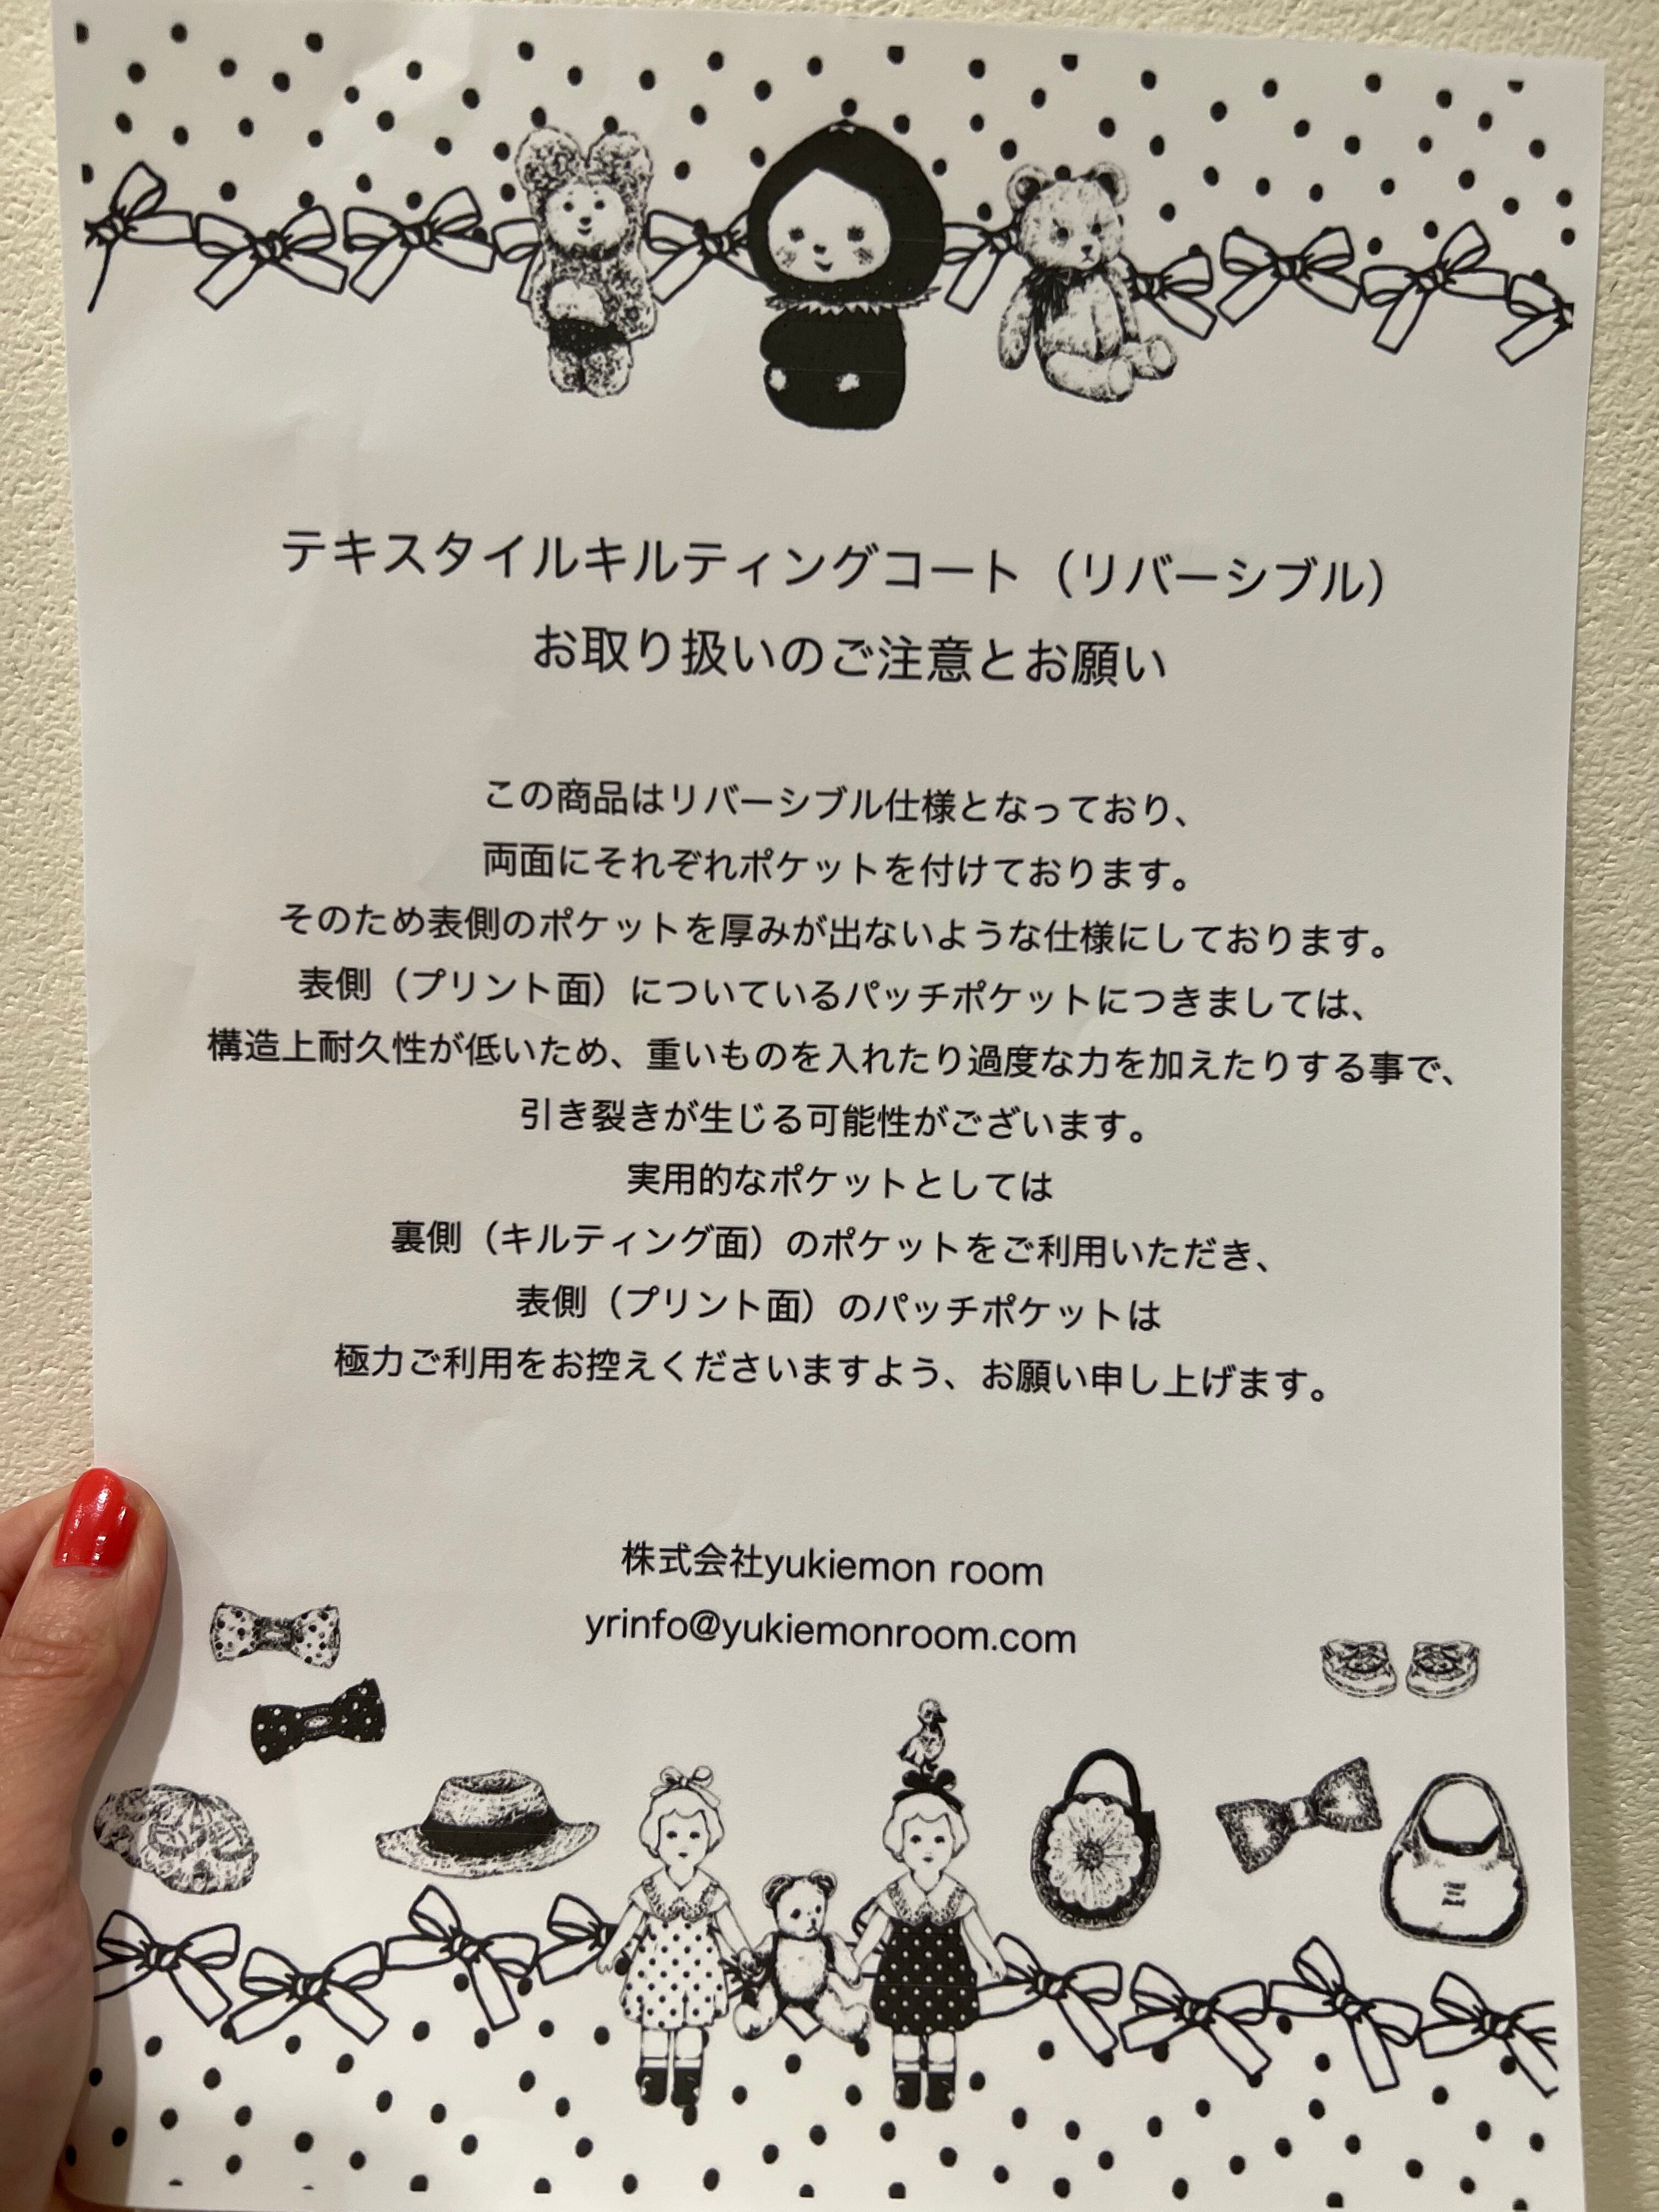 テキスタイルキルティングコート（リバーシブル）
お取り扱いのご注意とお願い
この商品はリバーシブル仕様となっており、
両面にそれぞれポケットを付けております。
そのため表側のポケットを厚みが出ないような仕様にしております。
表側（プリント面）についているパッチポケットにつきましては、
構造上耐久性が低いため、重いものを入れたり過度な力を加えたりする事で、
引き裂きが生じる可能性がございます。
実用的なポケットとしては
裏側（キルティング面）のポケットをご利用いただき、
表側（プリント面）のパッチポケットは
極力ご利用をお控えくださいますよう、お願い申し上げます。
株式会社yukiemon room
yrinfo@yukiemonroom.com